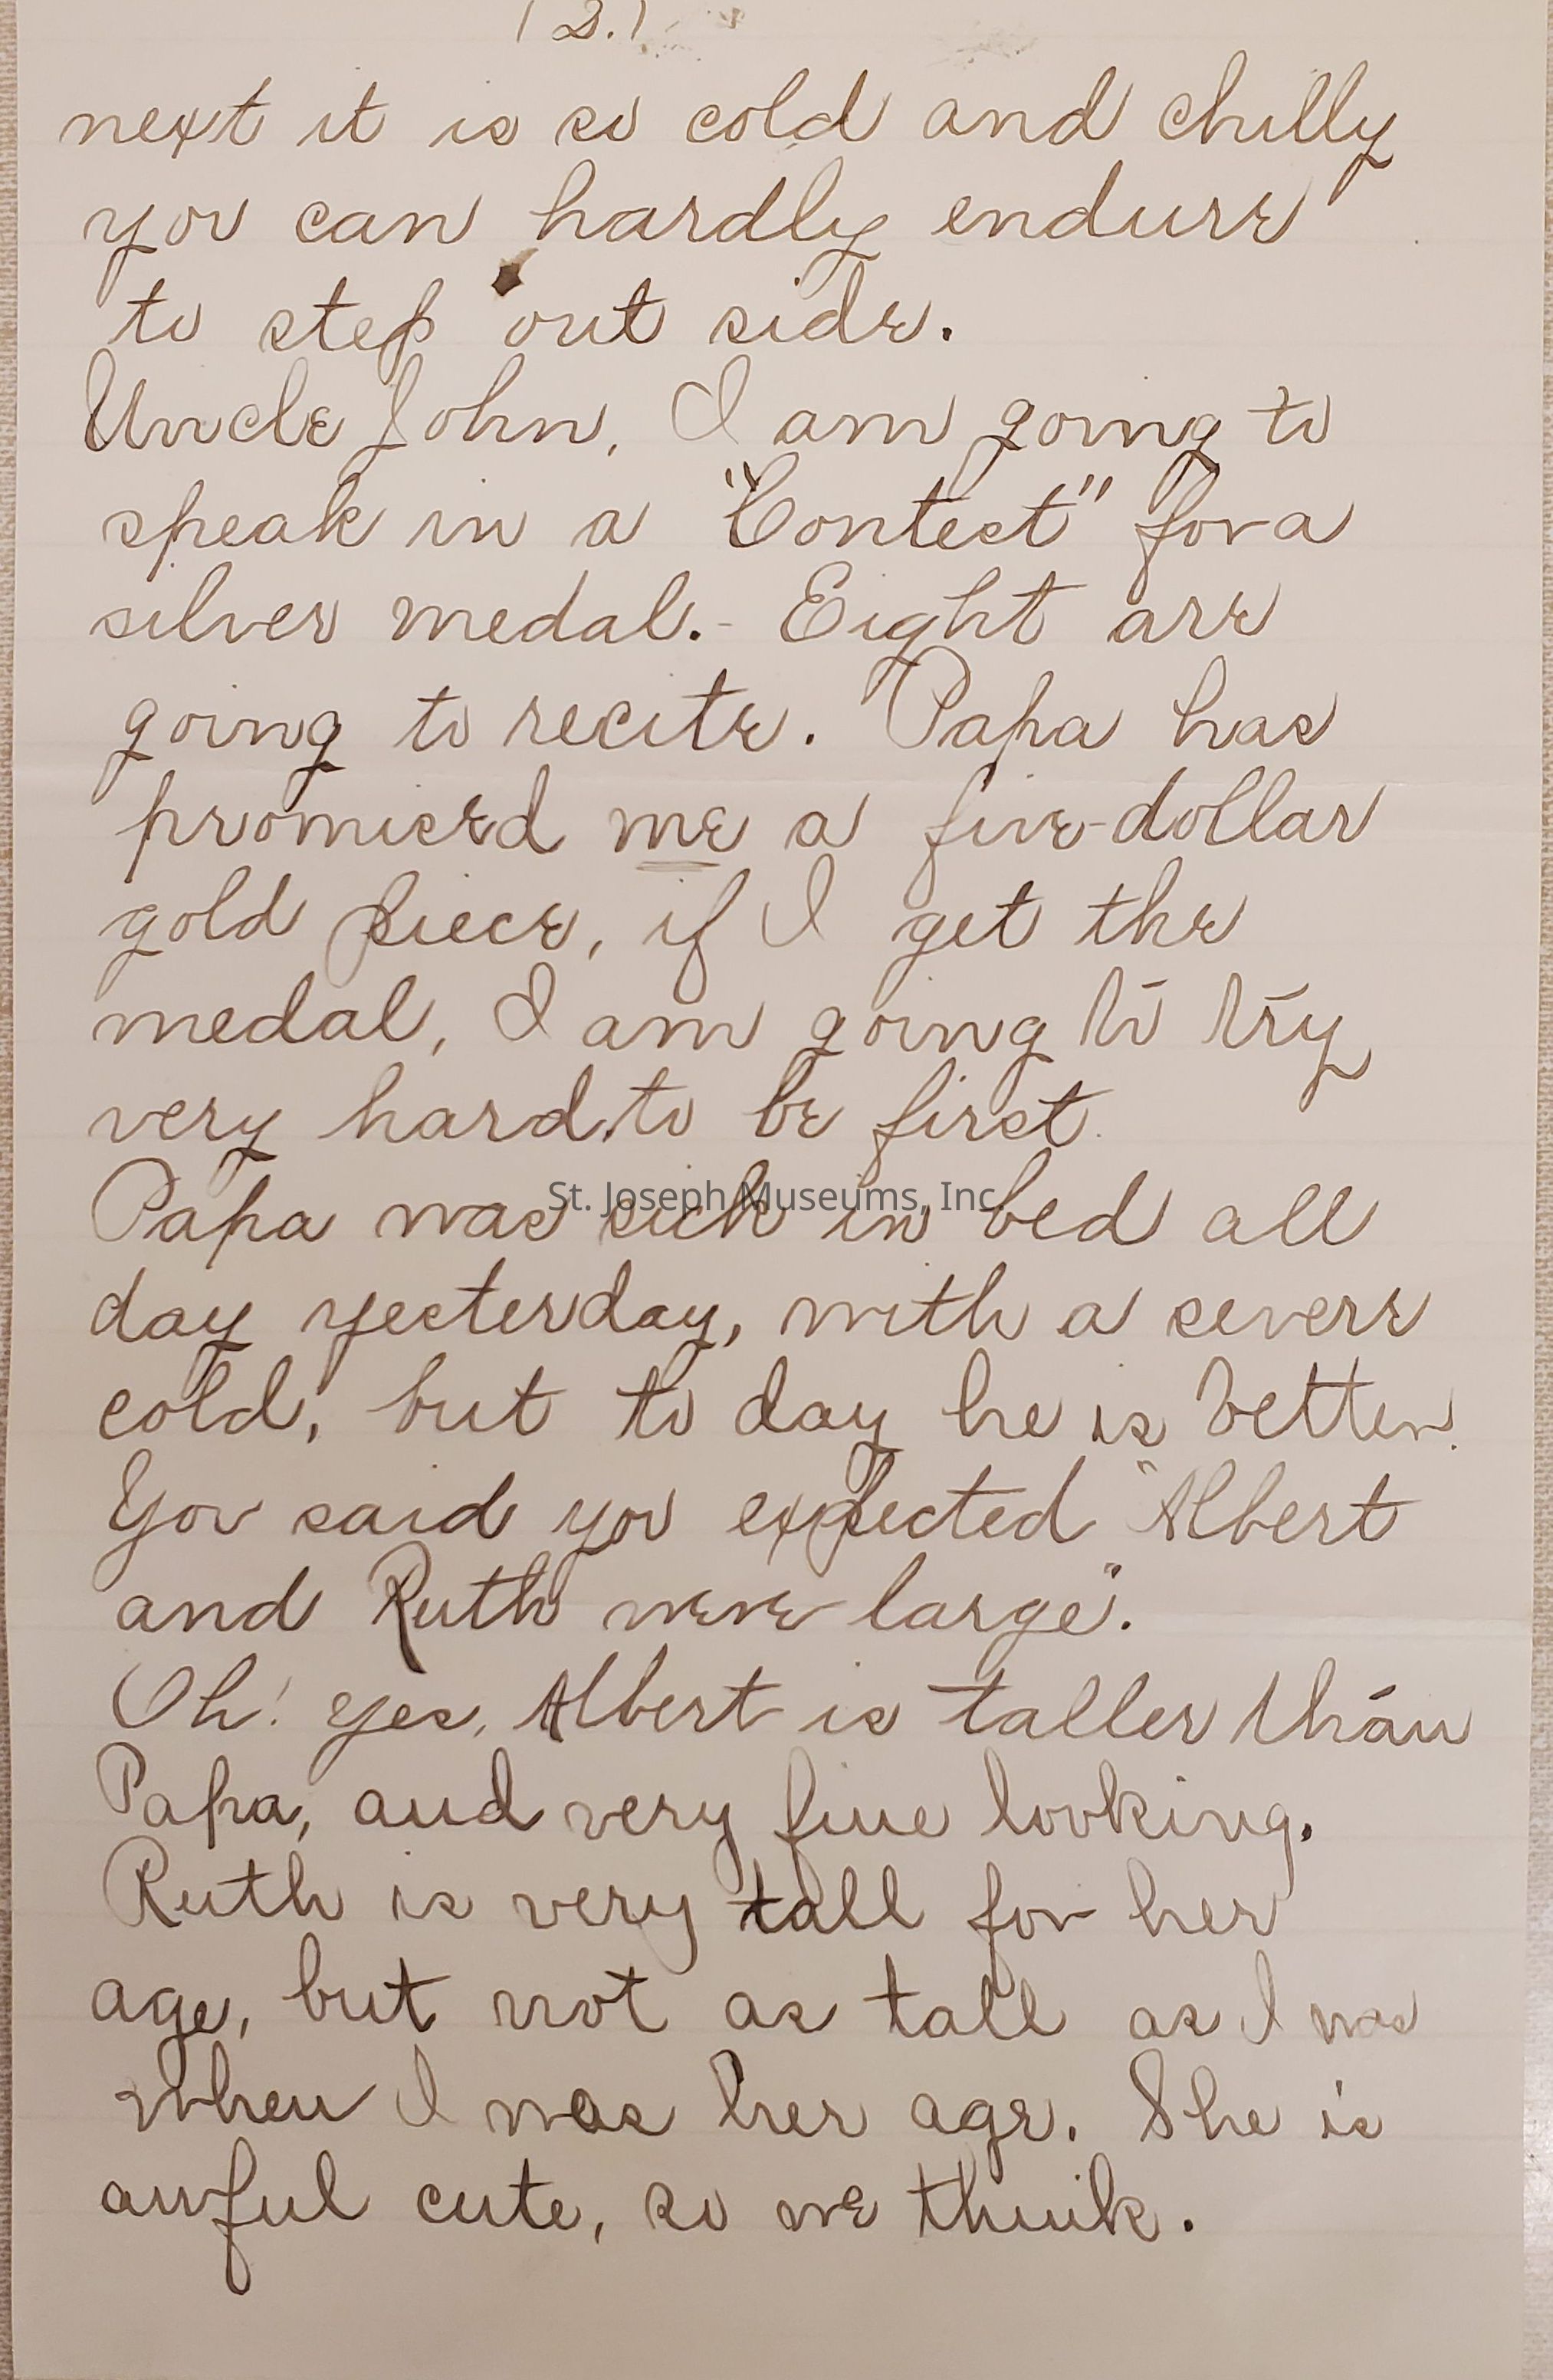 (2.)
next it is so cold and chilly
you can hardly endure
to step out side.
Uncle John, I am going to
speak in a "Contest" for a
silver medal.- Eight are
going to recite. Papa has
promised me a five-dollar
gold piece, if I get the
medal, I am going to try
very hard, to be first.
Papa was sick in bed all
St. Joseph Museums, Inc.
day yesterday, with a severe
cold, but to day he is better.
You said you expected "Albert
and Ruth were large".
Oh! yes, Albert is taller than
Papa, and very fine looking.
Ruth is very tall for her
age, but not as tall as I was
when I was her age. She is
awful cute, so we think.